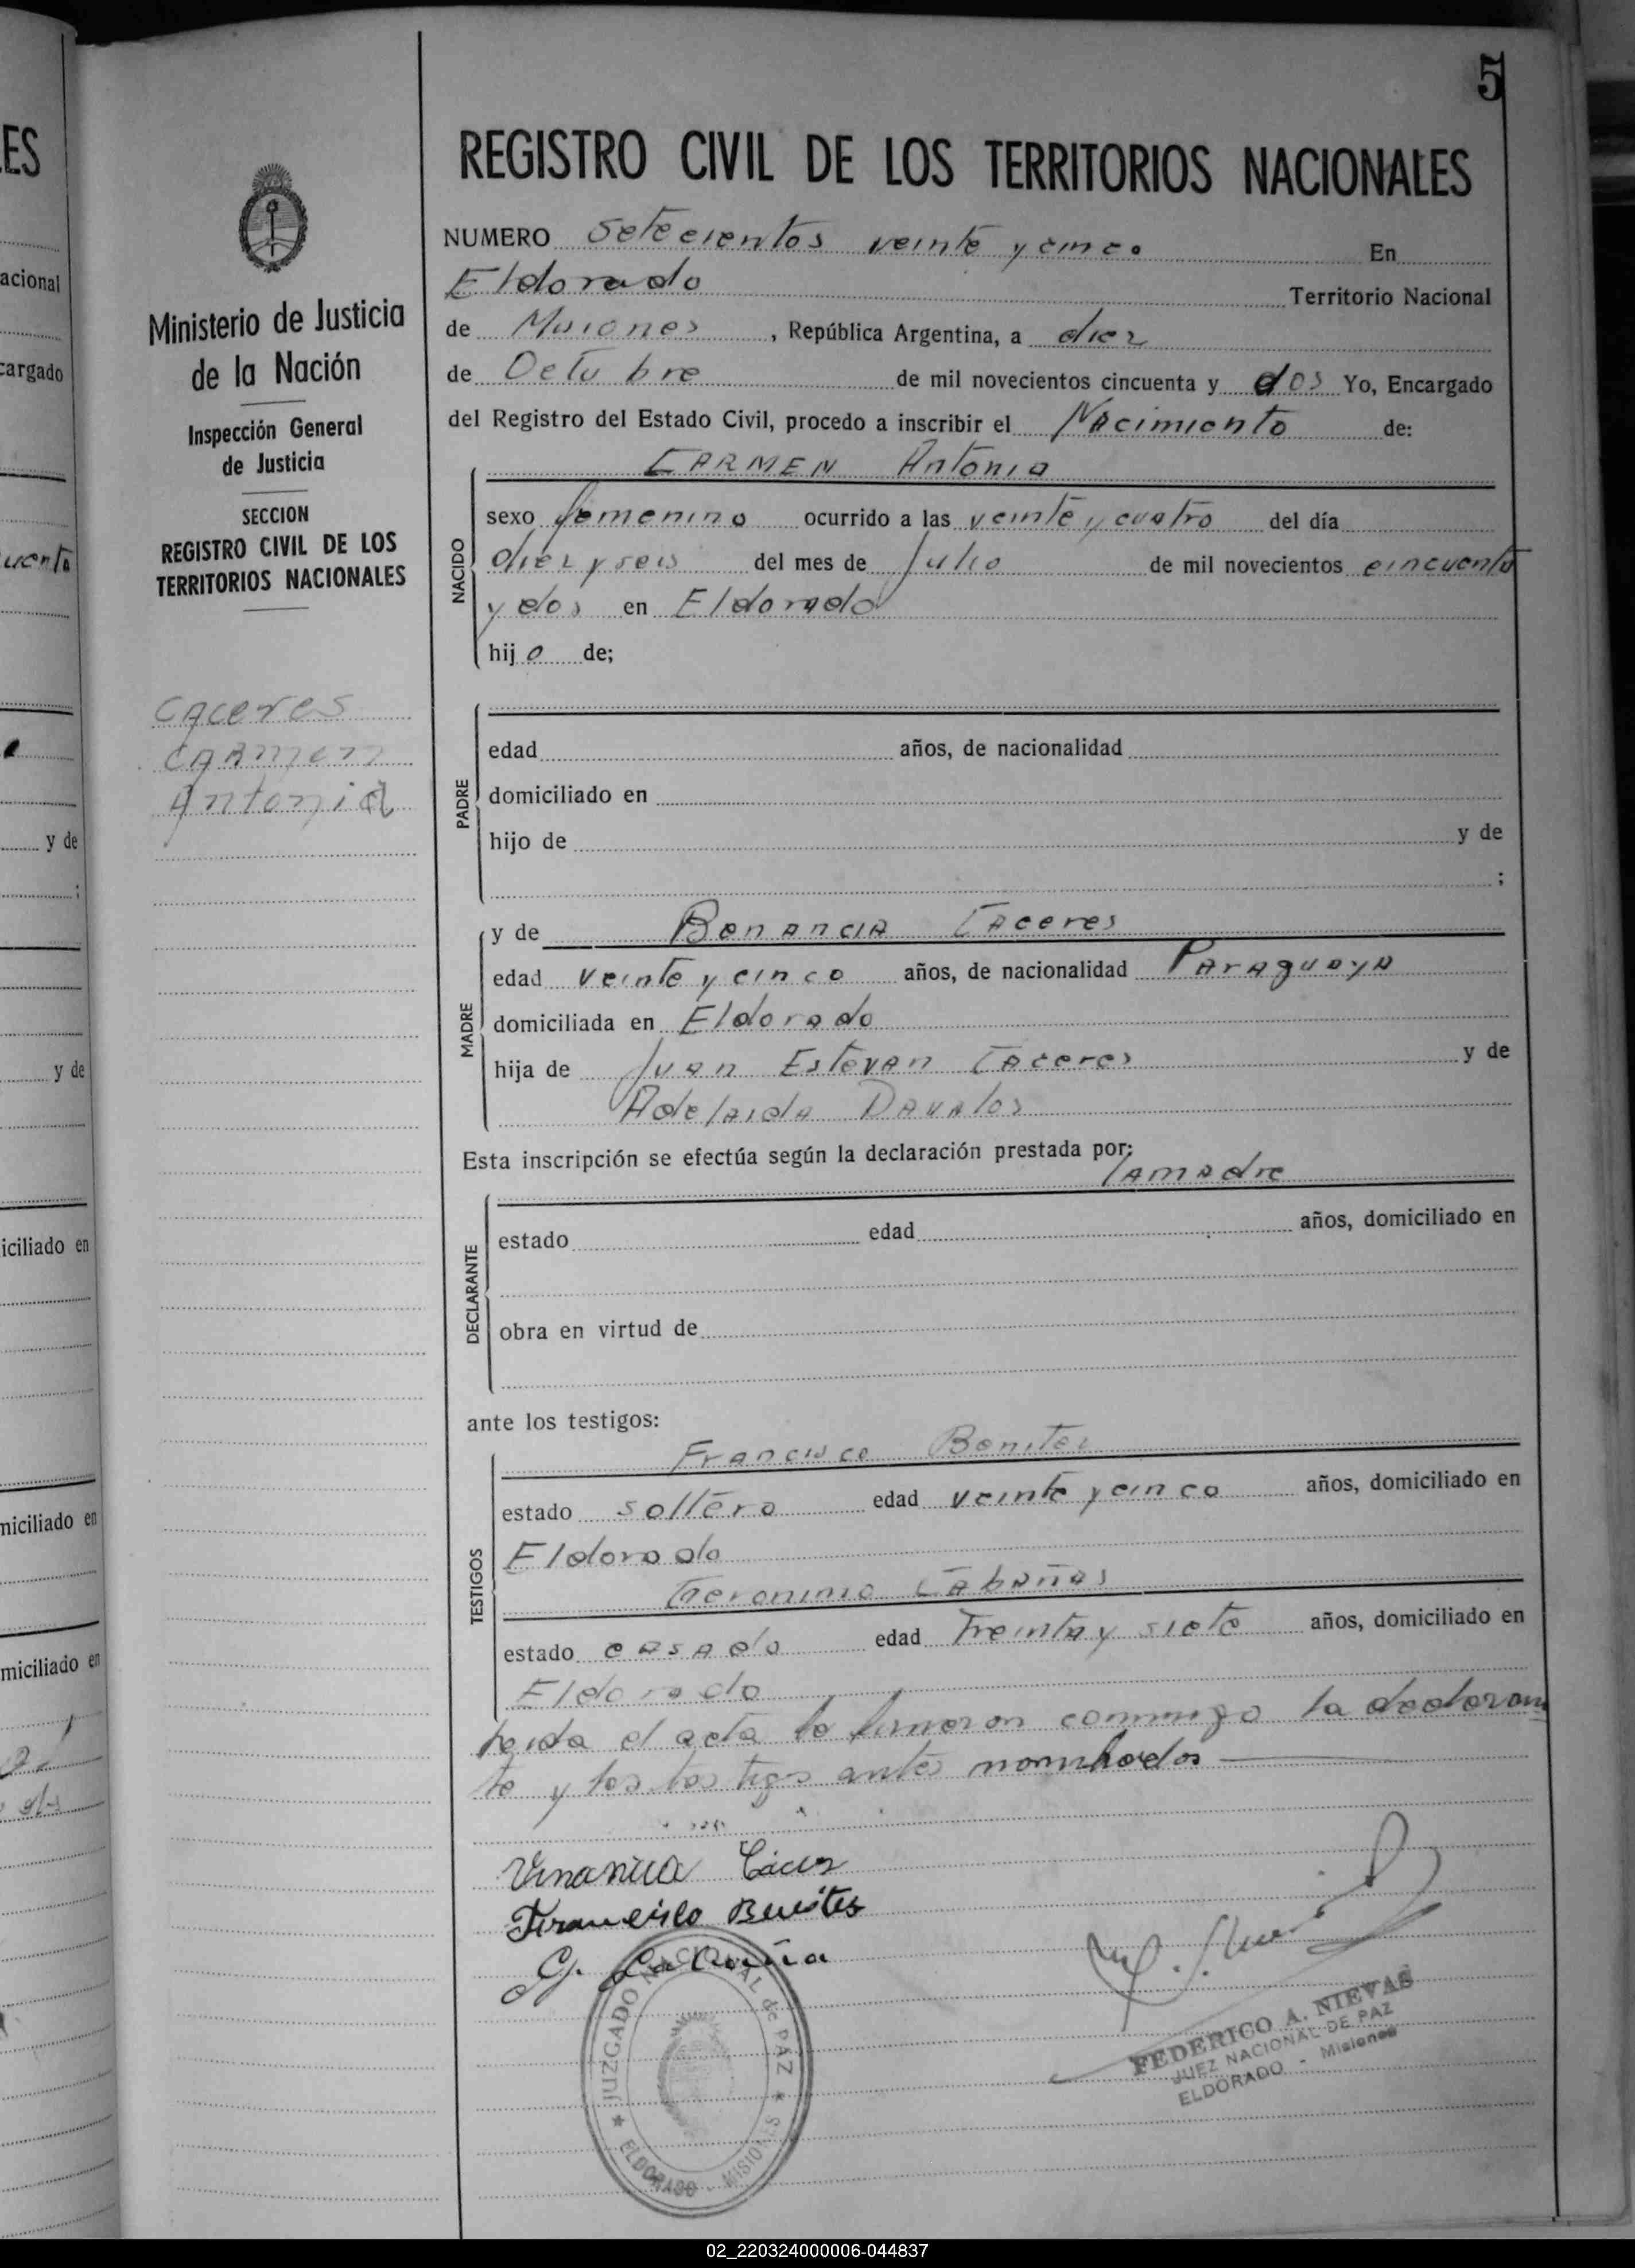 5
REGISTRO CIVIL DE LOS TERRITORIOS NACIONALES
NUMERO Setecientos veinte y cinco En
Eldorado Territorio Nacional
de Misiones, República Argentina, a diez
de Octubre de mil novecientos cincuenta y dos Yo, Encargado
del Registro del Estado Civil, procedo a inscribir el Nacimiento de:
CARMEN Antonia
NACIDO
sexo femenino ocurrido a las veinte y cuatro del día
diez y seis del mes de Julio de mil novecientos cincuenta
y dos en Eldorado
hij a de;
PADRE
edad años, de nacionalidad
domiciliado en
hijo de y de
;
MADRE
y de Benancia Caceres
edad veinte y cinco años, de nacionalidad Paraguaya
domiciliada en Eldorado
hija de Juan Estevan Caceres y de
Adelaida Davalos
Esta inscripción se efectúa según la declaración prestada por:
la madre
DECLARANTE
estado edad años, domiciliado en
obra en virtud de
ante los testigos:
TESTIGOS
Francisco Benitez
estado soltero edad veinte y cinco años, domiciliado en
Eldorado
Geronimo Cabañas
estado casado edad Treinta y siete años, domiciliado en
Eldorado
leida el acta la firmaron conmigo la declaran
te y los testigos antes nombrados
Francisco Benites
JUZGADO NACIONAL de PAZ
ELDORADO - MISIONES
FEDERICO A. NIEVAS
JUEZ NACIONAL DE PAZ
ELDORADO - Misiones
Ministerio de Justicia
de la Nación
Inspección General
de Justicia
SECCION
REGISTRO CIVIL DE LOS
TERRITORIOS NACIONALES
Caceres
Carmen
Antonia
ES
acional
cargado
y de
;
y de
iciliado en
niciliado en
miciliado en
02_220324000006-044837